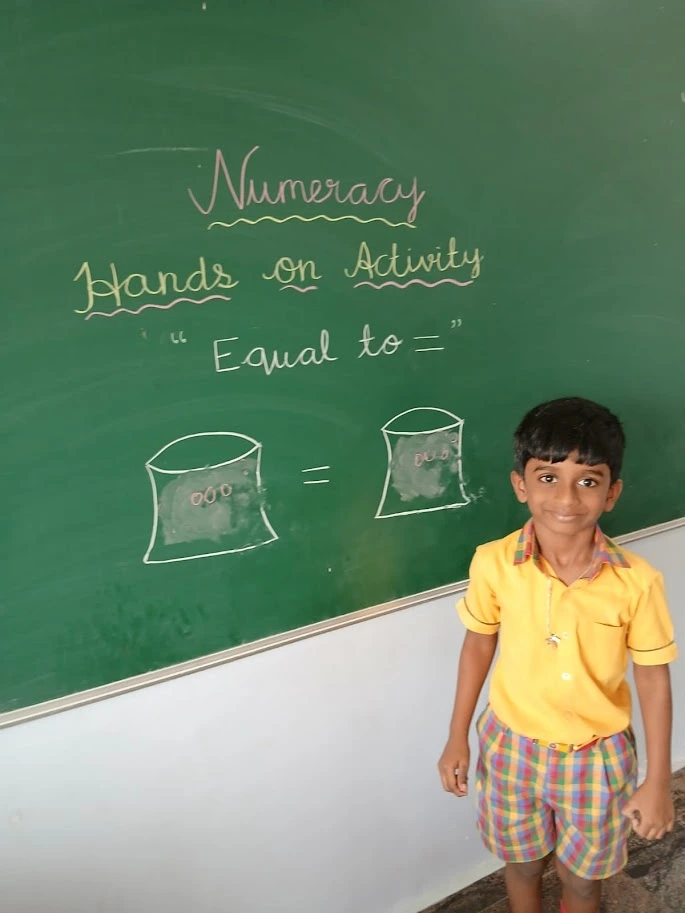 Numeracy
Hands on Activity
“ Equal to = ”
000 = 000